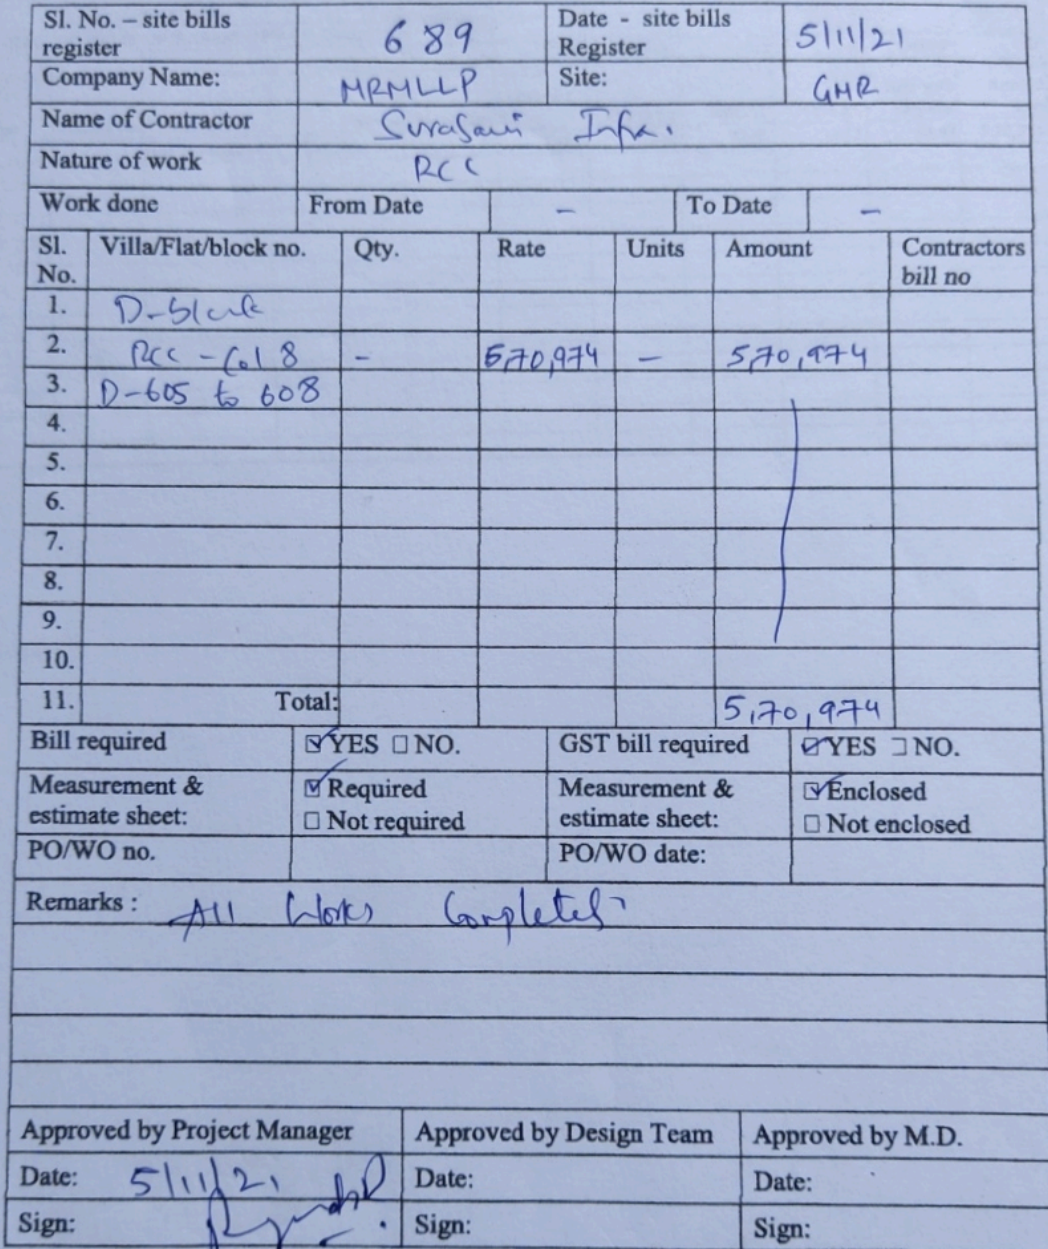 Sl. No. – site bills register 689 Date - site bills Register 5/11/21
Company Name: MRMLLP Site: GMR
Name of Contractor Infra.
Nature of work RCC
Work done From Date – To Date –
Sl. No. Villa/Flat/block no. Qty. Rate Units Amount Contractors bill no
1. D-block
2. RCC - Col 8 – 5,70,974 – 5,70,974
3. D-605 to 608
4.
5.
6.
7.
8.
9.
10.
11. Total: 5,70,974
Bill required ☑ YES ☐ NO. GST bill required ☑ YES ☐ NO.
Measurement & estimate sheet: ☑ Required ☐ Not required Measurement & estimate sheet: ☑ Enclosed ☐ Not enclosed
PO/WO no. PO/WO date:
Remarks : All Works Completed
Approved by Project Manager Approved by Design Team Approved by M.D.
Date: 5/11/21 Date: Date:
Sign: Sign: Sign: